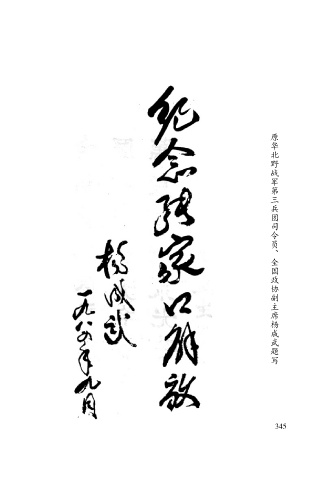 原华北野战军第三兵团司令员、全国政协副主席杨成武题写
纪念张家口解放
杨成武
一九八四年九月
345